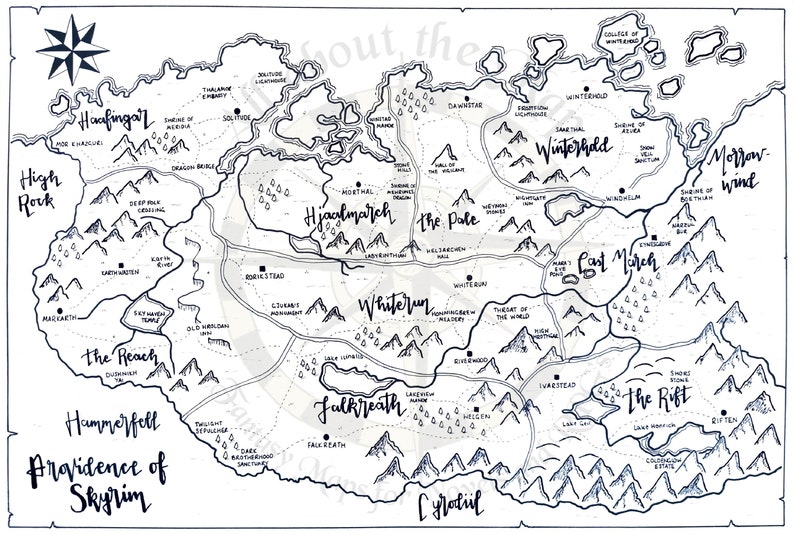 COLLEGE OF
WINTERHOLD
SOLITUDE
LIGHTHOUSE
THALMOR
EMBASSY
WINTERHOLD
DAWNSTAR
FROSTFLOW
LIGHTHOUSE
Haafingar
SHRINE OF
MERIDIA
SOLITUDE
WINSTAD
MANOR
SAARTHAL
SHRINE OF
AZURA
MOR KHAZGUR
Winterhold
SNOW
VEIL
SANCTUM
DRAGON BRIDGE
STONE
HILLS
HALL OF
THE VIGILANT
Morrow-
wind
High
Rock
MORTHAL
SHRINE OF
MEHRUNES
DRAGON
NIGHTGATE
INN
WINDHELM
SHRINE OF
BOETHIAH
DEEP FOLK
CROSSING
Hjaalmarch
the Pale
WEYNON
STONES
NARZUL
BUR
KYNESGROVE
LABYRINTHIAN
HELJARCHEN
HALL
East March
Karth
River
KARTHWASTEN
RORIKSTEAD
WHITERUN
MARA'S
EYE
POND
MARKARTH
SKY HAVEN
TEMPLE
GJUKAR'S
MONUMENT
Whiterun
HONNINGBREW
MEADERY
THROAT OF
THE WORLD
OLD HROLDAN
INN
HIGH
HROTHGAR
the Reach
DUSHNIKH
YAL
Lake Ilinalta
RIVERWOOD
IVARSTEAD
SHORS
STONE
LAKEVIEW
MANOR
Falkreath
HELGEN
the Rift
Lake Geir
RIFTEN
Hammerfell
TWILIGHT
SEPULCHER
FALKREATH
Lake Honrich
DARK
BROTHERHOOD
SANCTUARY
GOLDENGLOW
ESTATE
Providence of
Skyrim
Cyrodiil